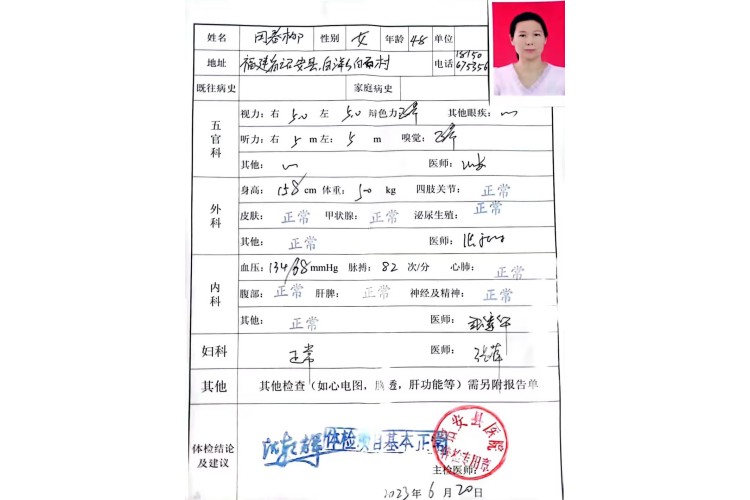 姓名 田春柳 性别 女 年龄 48 单位
地址 福建省诏安县白洋乡白石村 电话 18150675356
既往病史 家庭病史
五官科
视力：右 5.0 左 5.0 辩色力 正常 其他眼疾：
听力：右 5 m 左：5 m 嗅觉：正常
其他： 医师：
外科
身高：158 cm 体重：50 kg 四肢关节：正常
皮肤：正常 甲状腺：正常 泌尿生殖：正常
其他：正常 医师：
内科
血压：134/68 mmHg 脉搏：82 次/分 心肺：正常
腹部：正常 肝脾：正常 神经及精神：正常
其他：正常 医师：
妇科 正常 医师：
其他 其他检查（如心电图，胸透，肝功能等）需另附报告单
体检结论及建议
体检项目基本正常
诏安县医院
体检专用章
主检医师：
2023年6月20日